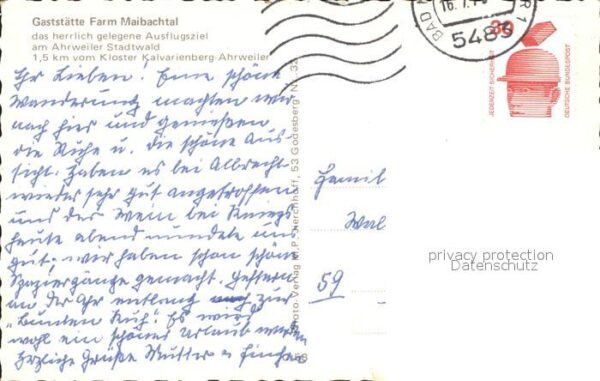 Gaststätte Farm Maibachtal
das herrlich gelegene Ausflugsziel
am Ahrweiler Stadtwald
1,5 km vom Kloster Kalvarienberg-Ahrweiler
Ihr Lieben! Eine schöne
Wanderung machten wir
nach hier und genießen
die Ruhe u. die schöne Aus
sicht. Haben es bei Albrecht
wieder sehr gut angetroffen
und der Wein bei Kniegs
heute abend mundete uns
gut; wir haben schon schöne
Spaziergänge gemacht. Gestern
an der Ahr entlang zur
„Bunten Kuh“! Es wird
wohl ein schöner Urlaub werden
Herzliche Grüße Mutter u
Foto-Verlag H.P. 53 Godesberg Nr. 33
58
16.7.
BAD
5483
1
30
JEDERZEIT SICHERHEIT
DEUTSCHE BUNDESPOST
Famil
Wal
59
privacy protection
Datenschutz